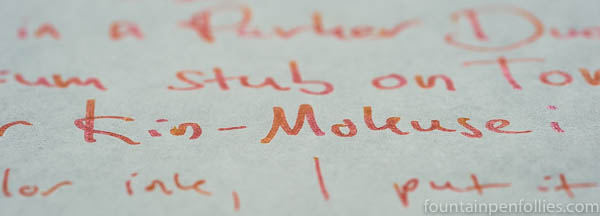 in a Parker Duo
um stub on Tom
r Kin-Mokusei
lor ink, I put it
fountainpenfollies.com